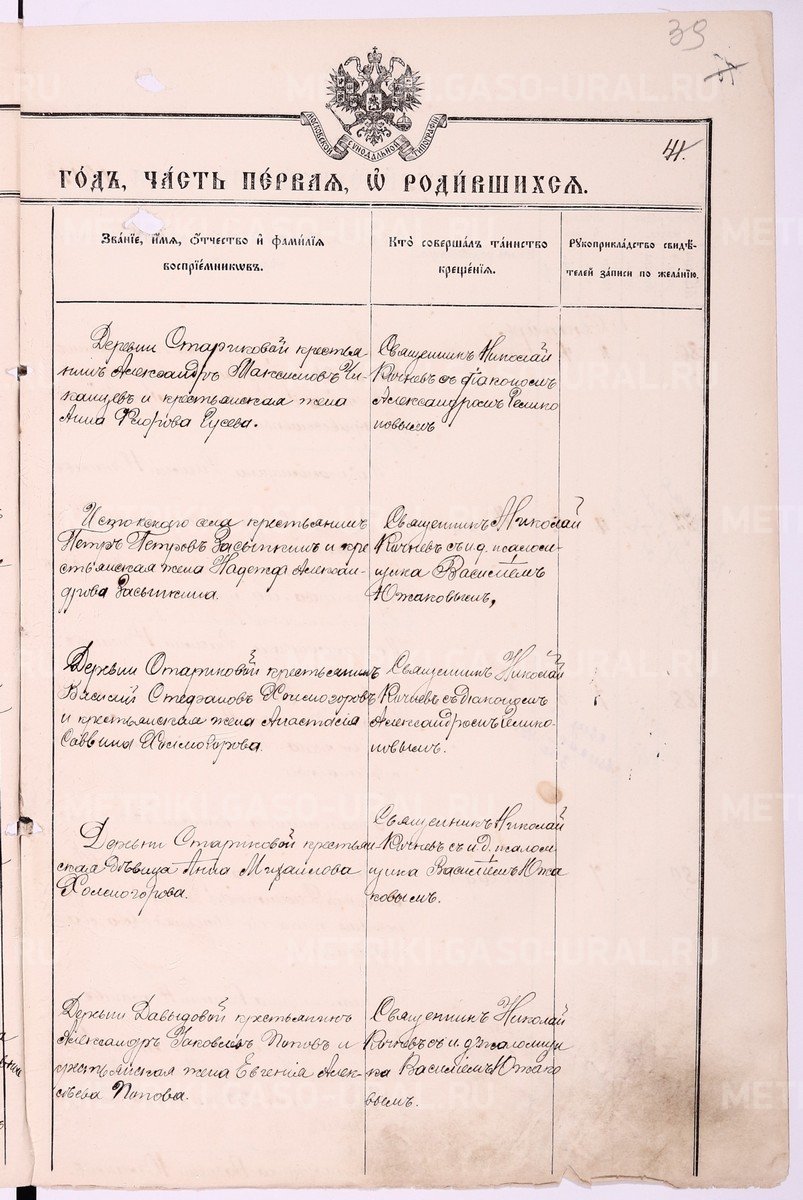 39
41.
МОСКОВСКОЙ СѴНОДАЛЬНОЙ ТИПОГРАФІИ
ГО́ДЪ, ЧА́СТЬ ПЕ́РВАЯ, Ѡ҆ РОДИ́ВШИХСЯ.
Зва́нїе, и҆́мѧ, ѻ҆́тчество и҆ фами́лїѧ
воспрїе́мникѡвъ.
Кто̀ соверша́лъ та́инство
креще́нїѧ.
Рꙋкоприкла́дство свидѣ́-
телей за́писи по жела́нїю.
Деревни Стариковой крестья
нинъ Александръ Максимовъ
и крестьянская жена
Анна Гусева.
Священникъ Николай
Кичневъ съ діакономъ
Александромъ Велико
повымъ
Истокского села крестьянинъ
Петръ Петровъ Засыпкинъ и кре
стьянская жена Надежда Алексан-
дрова Засыпкина.
Священникъ Николай
Кичневъ съ и.д. псалом-
щика Василіемъ
Южаковымъ,
Деревни Стариковой крестьянинъ
Василій Стефановъ Холмогоровъ
и крестьянская жена Анастасія
Саввина Холмогорова.
Священникъ Николай
Кичневъ съ діакономъ
Александромъ Велико-
повымъ.
Деревни Стариковой крестьян
ская дѣвица Анна Михайлова
Холмогорова.
Священникъ Николай
Кичневъ съ и.д. псалом-
щика Василіемъ Южа
ковымъ.
Деревни Давыдовой крестьянинъ
Александръ Яковлевъ Поповъ и
крестьянская жена Евгенія Алек-
сѣева Попова.
Священникъ Николай
Кичневъ съ и.д. псаломщи
ка Василіемъ Южако
вымъ.
METRIKI.GASO-URAL.RU
METRIKI.GASO-URAL.RU
METRIKI.GASO-URAL.RU
METRIKI.GASO-URAL.RU